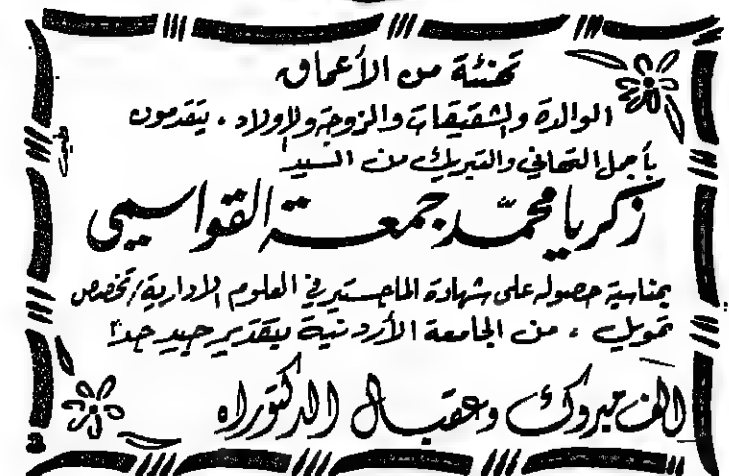 تهنئة من الأعماق
الوالدة والشقيقات والزوجة والاولاد ، يتقدمون
بأجمل التهاني والتبريك من السيد
زكريا محمد جمعة القواسمي
بمناسبة حصوله على شهادة الماجستير في العلوم الادارية / تخصص
تمويل ، من الجامعة الأردنية بتقدير جيد جداً
الف مبروك وعقبال الدكتوراه